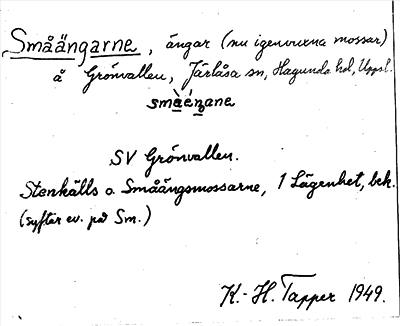 Småängarne, ängar (nu igenvuxna mossar)
å Grönvallen, Järlåsa sn, Hagunda hd, Uppsl.
småẹ́ŋane
SV Grönvallen.
Stenkälls o. Småängsmossarne, 1 Lägenhet, bek.
(syftar ev. på Sm.)
K.-H. Tapper 1949.